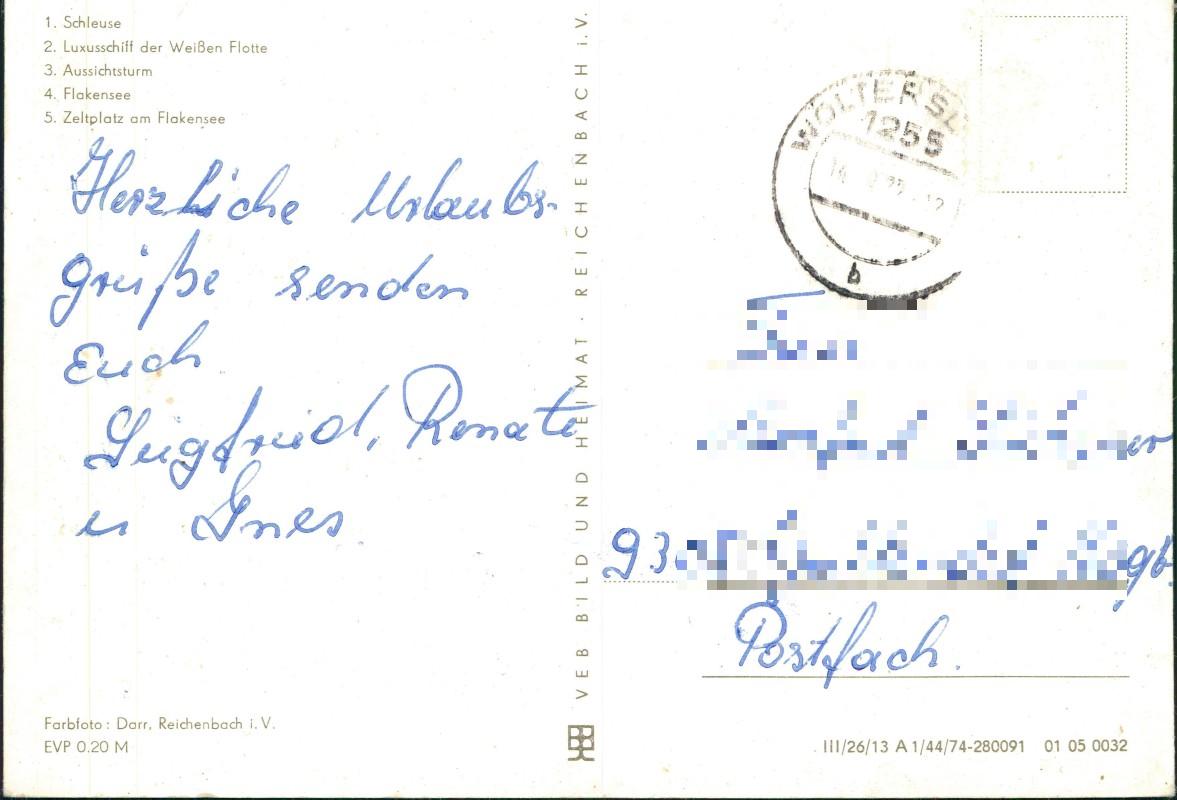 1. Schleuse
2. Luxusschiff der Weißen Flotte
3. Aussichtsturm
4. Flakensee
5. Zeltplatz am Flakensee
Herzliche Urlaubs-
grüße senden
Euch
Siegfried, Renate
u Ines
Farbfoto: Darr, Reichenbach i. V.
EVP 0.20 M
VEB BILD UND HEIMAT · REICHENBACH i. V.
WOLTERS
1255
b
Postfach.
III/26/13 A 1/44/74-280091 01 05 0032